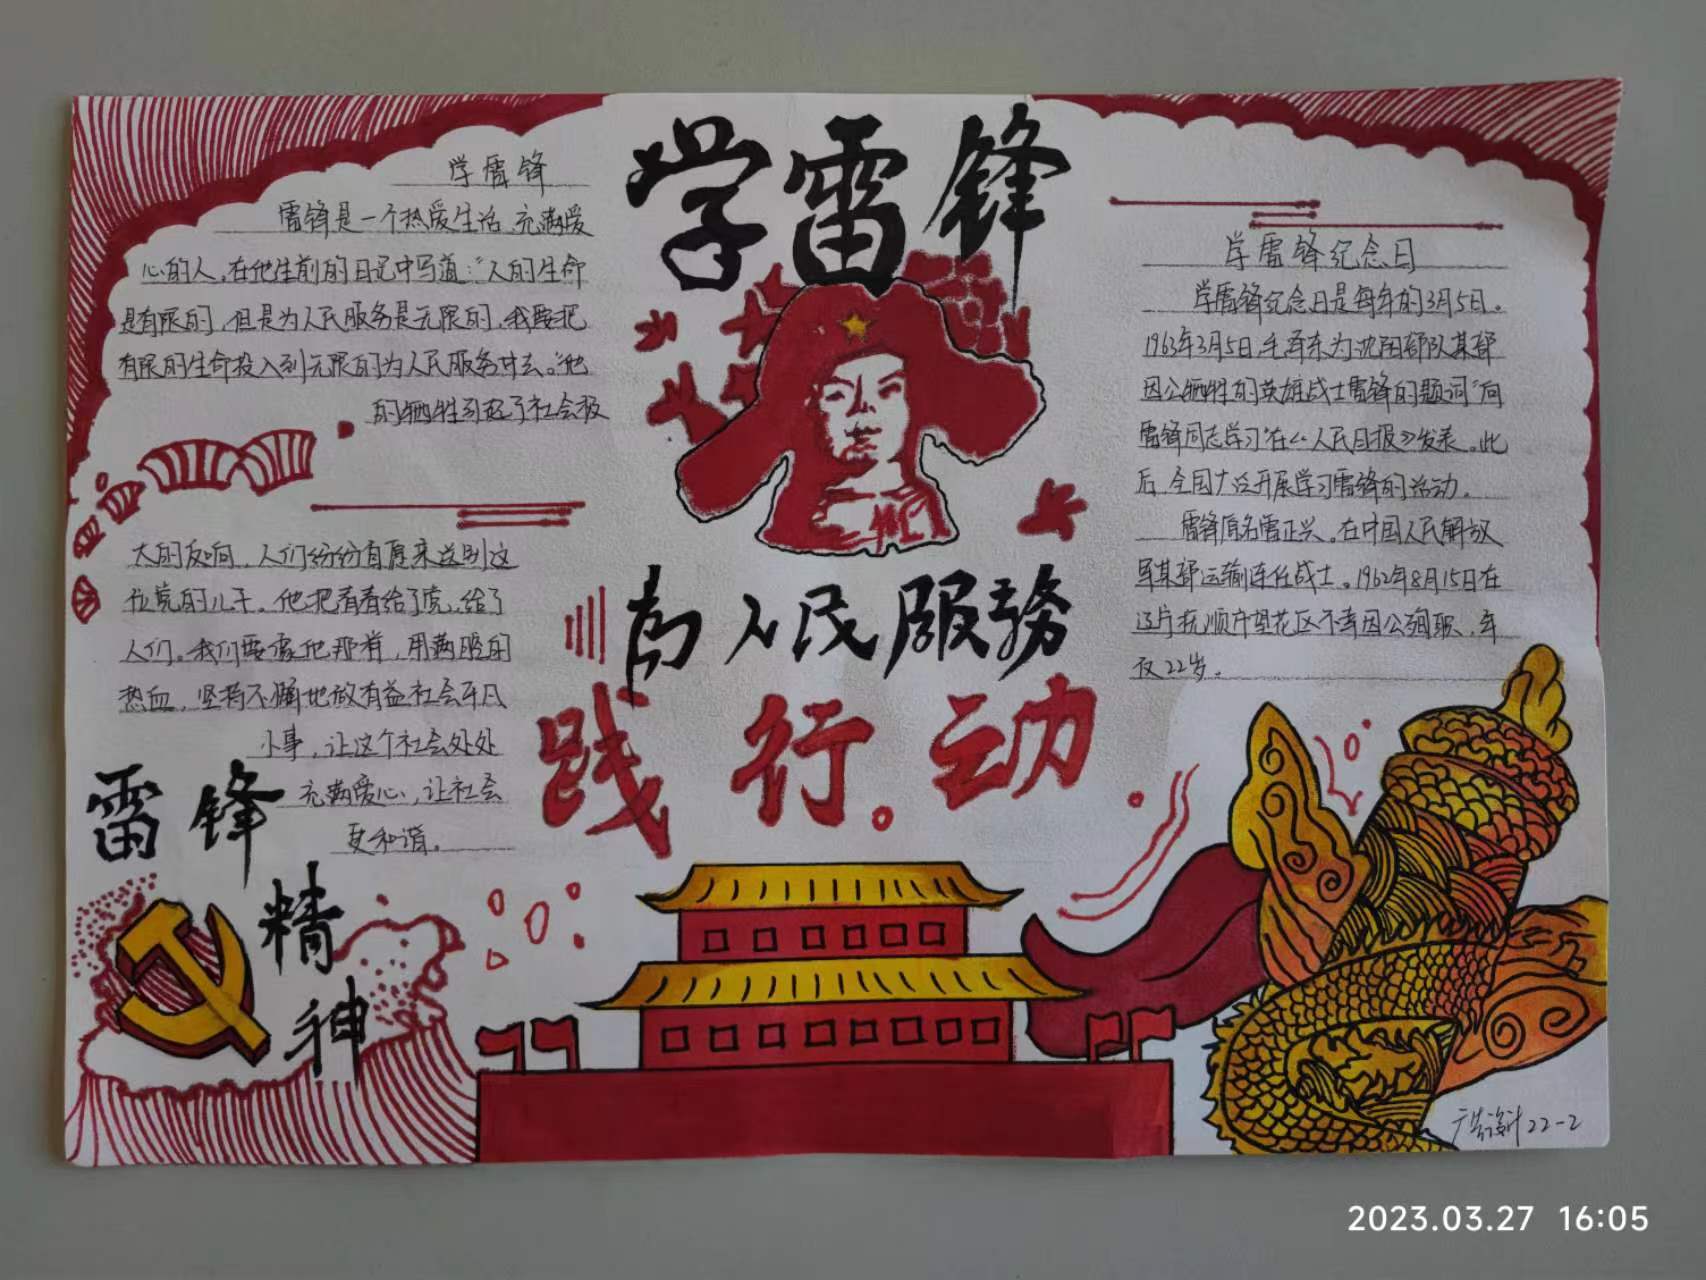 学雷锋
学雷锋
雷锋是一个热爱生活、充满爱
心的人，在他生前的日记中写道："人的生命
是有限的，但是为人民服务是无限的，我要把
有限的生命投入到无限的为人民服务中去。"他
的牺牲引起了社会极
大的反响，人们纷纷自愿来送别这
位党的儿子。他把青春给了党，给了
人们。我们要像他那样，用满腔的
热血，坚持不懈地做有益社会平凡
小事，让这个社会处处
充满爱心，让社会
更和谐。
学雷锋纪念日
学雷锋纪念日是每年的3月5日。
1963年3月5日，毛泽东为沈阳部队某部
因公牺牲的英雄战士雷锋的题词"向
雷锋同志学习"在《人民日报》发表。此
后，全国广泛开展学习雷锋的活动。
雷锋原名雷正兴。在中国人民解放
军某部运输连任战士。1962年8月15日在
辽宁抚顺市望花区不幸因公殉职，年
仅22岁。
为人民服務
践行动
雷锋
精
神
广告设计22-2
2023.03.27 16:05